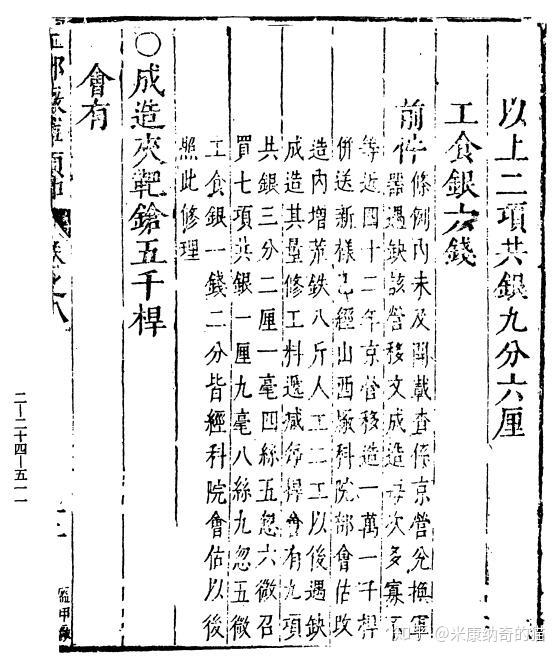 以上二項共銀九分六厘
工食銀六錢
前件條例內未及開載查係京營兌換軍
器遇缺該營移文成造每次多寡不
等近四十二年京營移造一萬一千桿
併送新樣已經山西廠科院部會估改
造內增荒鉄八斤人工二工以後遇缺
成造其量修工料遞減每桿會有九項
共銀三分二厘一毫四絲五忽六微召
買七項共銀一厘九毫八絲九忽五微
工食銀一錢二分皆經科院會估以後
照此修理
〇成造夾靶鎗五千桿
會有
卷之八
盔甲廠
二—二十四—五一一
知乎 @米康纳奇的猫